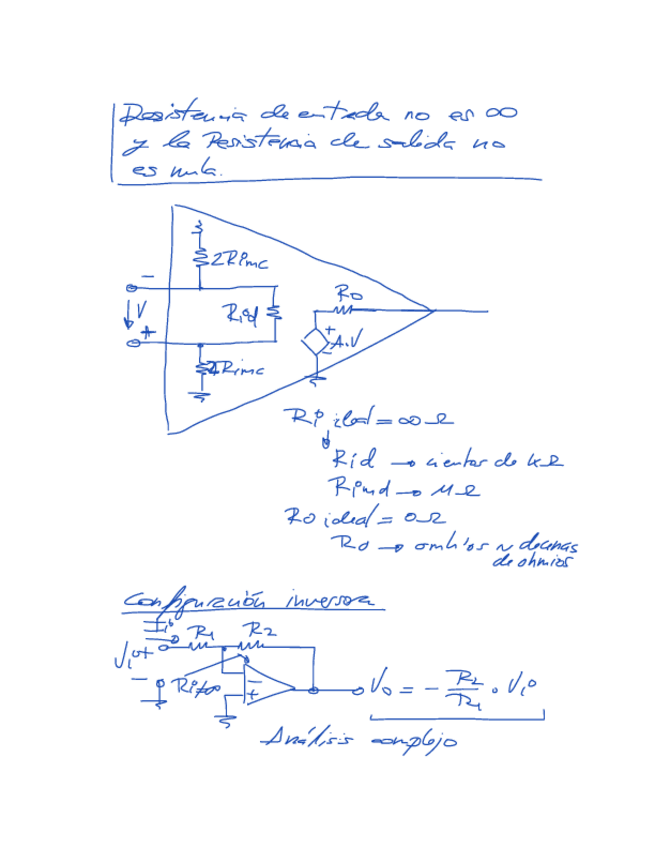 Resistencia de entrada no es ∞
y la Resistencia de salida no
es nula.
2Rimc
Ro
-
V
Rid
+
A.V
-
+
2Rimc
Ri ideal = ∞ Ω
Rid → cientos de kΩ
Rimd → MΩ
Ro ideal = 0Ω
Ro → omhios ~ decenas
de ohmios
Configuración inversora
R1
R2
Vi
+
-
-
+
Vo = - R2/R1 · Vi
Análisis complejo